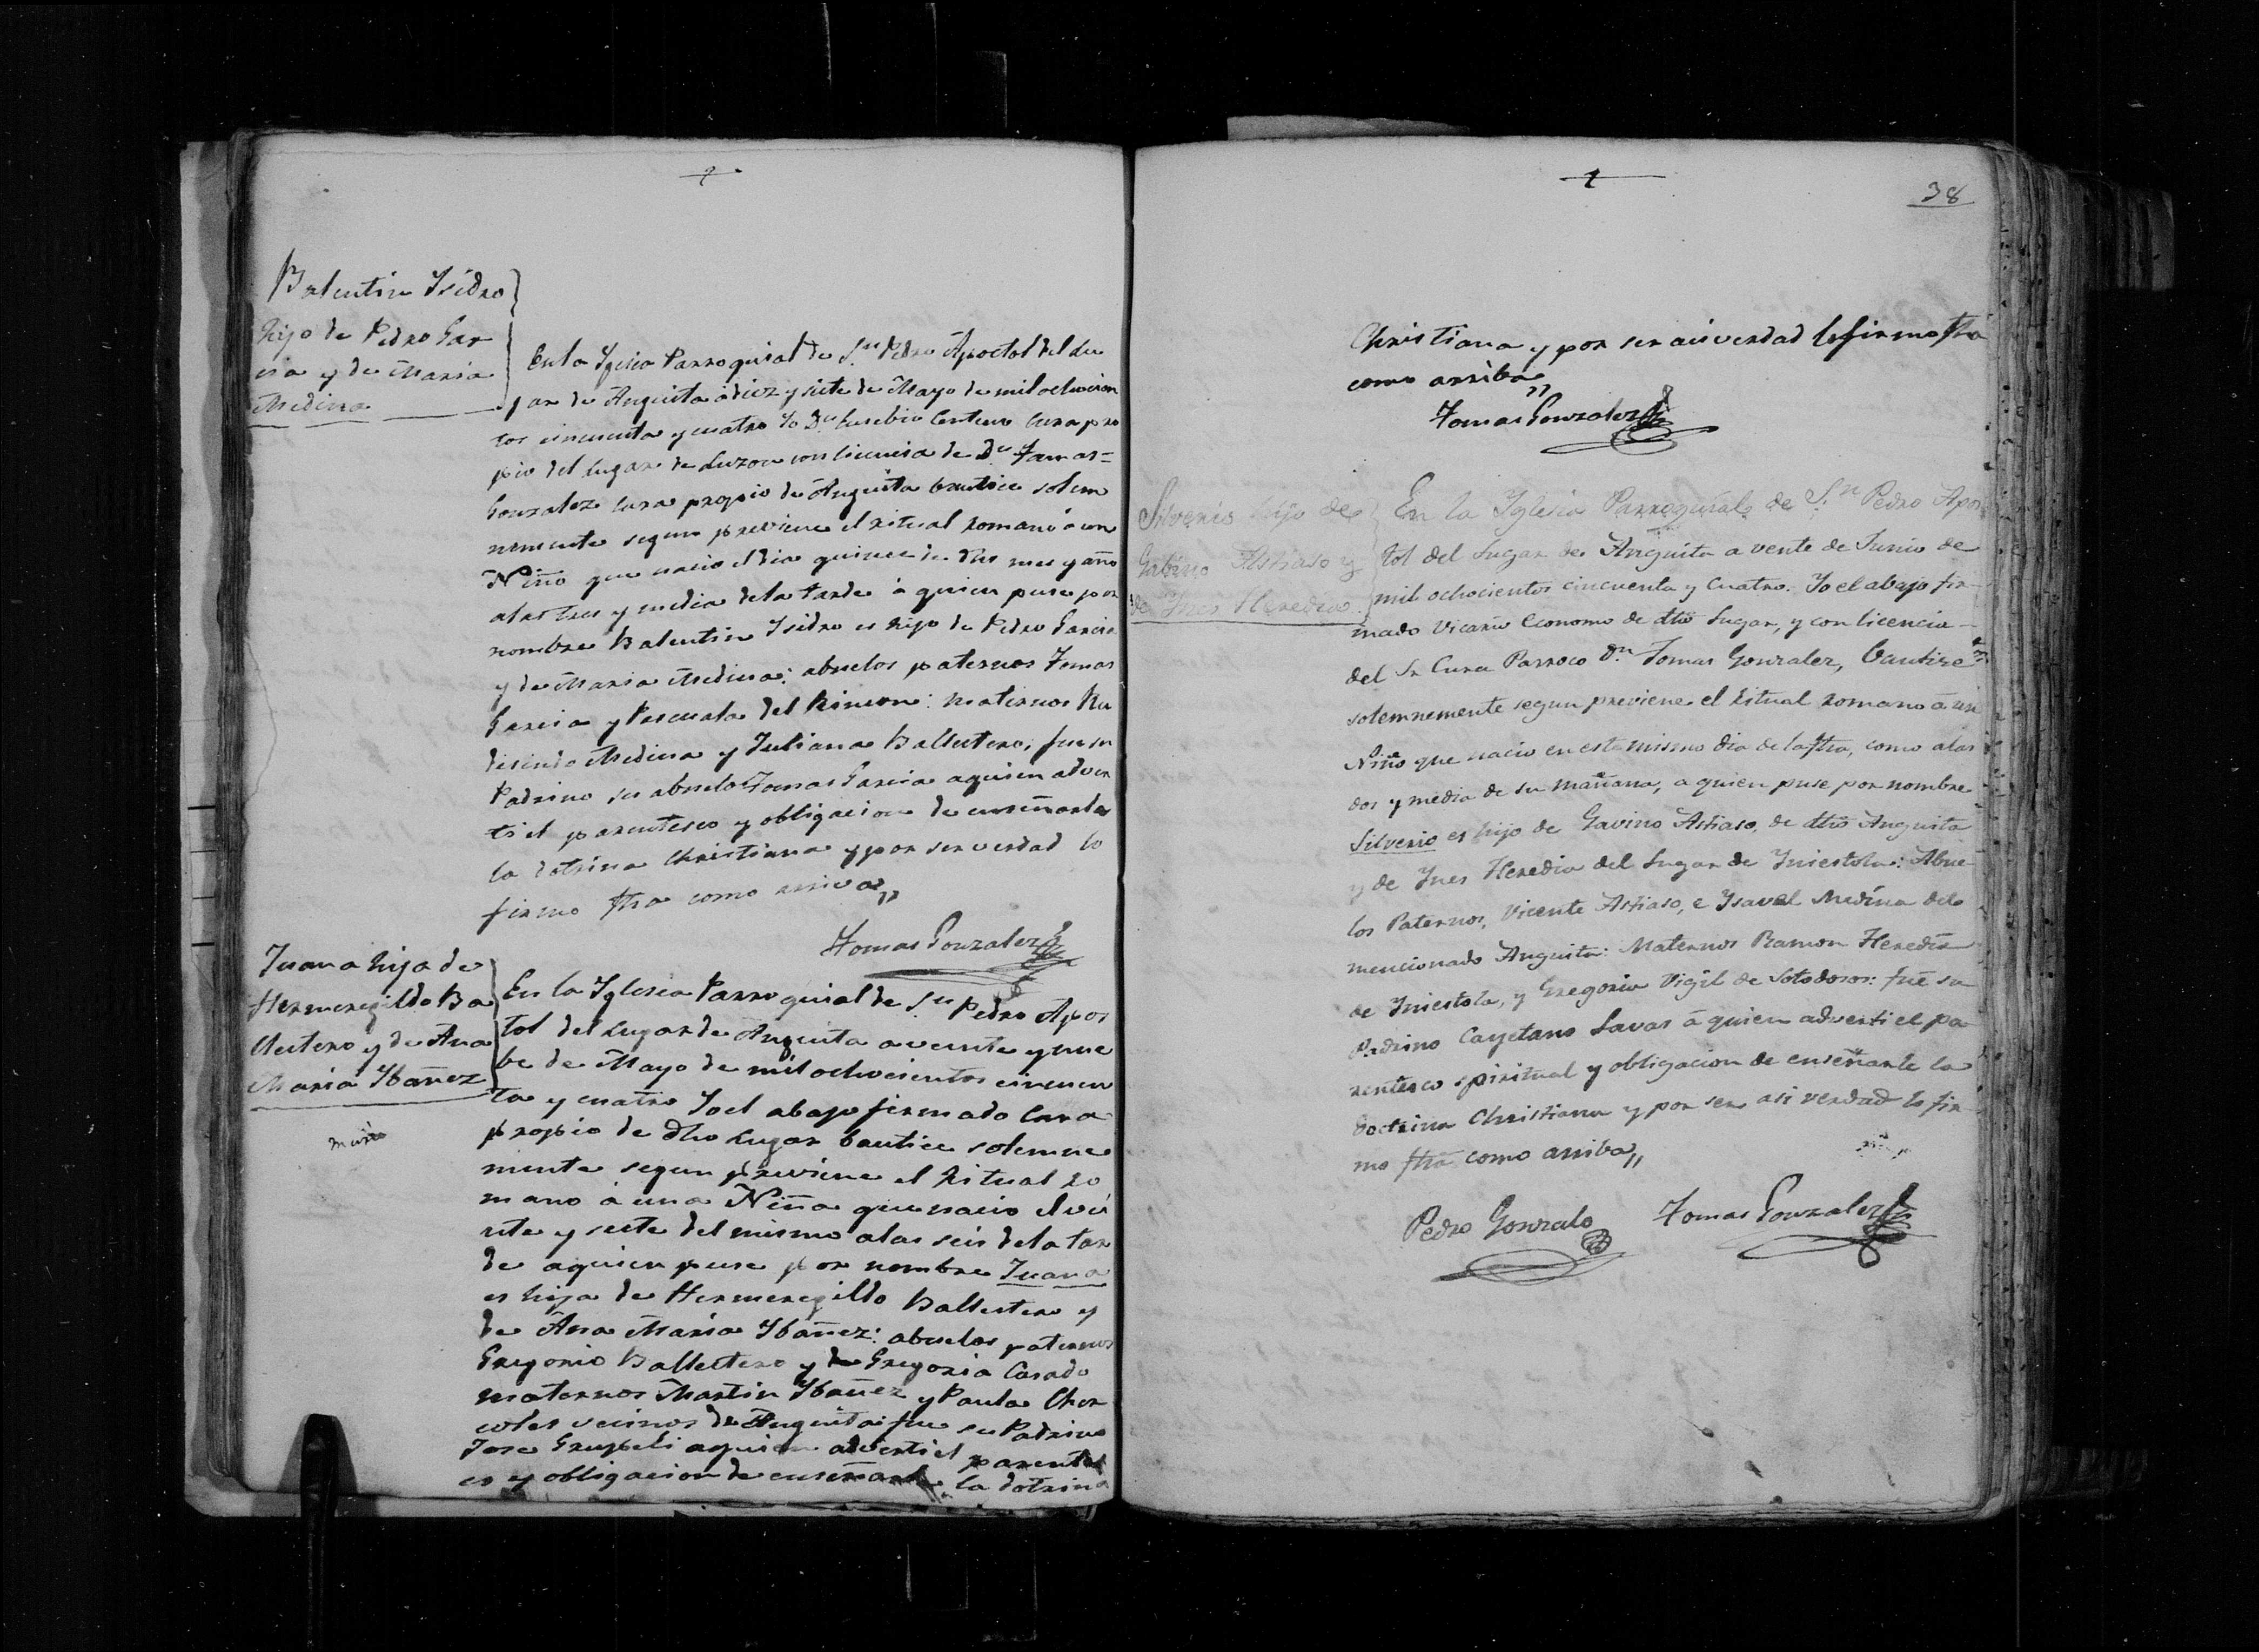 Balentin Ysidro
hijo de Pedro Gar
cia y de Maria
Medina
En la Yglesia Parroquial de Sn Pedro Apostol del Lu
gar de Anguita á diez y siete de Mayo de mil ochocien
tos cincuenta y cuatro Yo Dn Eusebio Centeno Cura pro
pio del Lugar de Luzon con licencia de Dn Tomas =
Gonzalez Cura propio de Anguita bautice solem
nemente segun previene el ritual romano á un
Niño que nacio el dia quince de dho mes y año
a las tres y media de la tarde á quien puse por
nombre Balentin Ysidro es hijo de Pedro Garcia
y de Maria Medina: abuelos paternos Tomas
Garcia y Pascuala del Rincon: maternos Ru
desindo Medina y Juliana Ballestero; fue su
Padrino su abuelo Tomas Garcia a quien adver
ti el parentesco y obligacion de enseñarle
la dotrina Christiana y por ser verdad lo
firmo fha como arriva,,
Tomas Gonzalez
Juana hija de
Hermenegildo Ba
llestero y de Ana
Maria Ybañez
murio
En la Yglesia Parroquial de Sn Pedro Apos
tol del Lugar de Anguita a veinte y nue
be de Mayo de mil ochocientos cincuen
ta y cuatro Yo el abajo firmado Cura
propio de dho Lugar bautice solemne
mente segun previene el Ritual ro
mano á una Niña que nacio el vei
nte y siete del mismo a las seis de la tar
de a quien puse por nombre Juana
es hija de Hermenegildo Ballestero y
de Ana Maria Ybañez: abuelos paternos
Gregorio Ballestero y de Gregoria Casado
maternos Martin Ybañez y Paula Cher
coles vecinos de Anguita: fue su Padrino
Jose a quien adverti el parentes
co y obligacion de enseñarle la dotrina
38
Christiana y por ser asi verdad lo firmo fha
como arriba,,
Tomas Gonzalez
Silverio hijo de
Gabino Astiaso y
de Ynes Heredia
En la Yglesia Parroquial de Sn Pedro Apos
tol del Lugar de Anguita a vente de Junio de
mil ochocientos cincuenta y cuatro. Yo el abajo fir-
mado Vicario Economo de dho Lugar, y con licencia
del Sr Cura Parroco Dn Tomas Gonzalez, bautize
solemnemente segun previene el Ritual romano á un
Niño que nacio en este mismo dia de la fha, como a las
dos y media de su mañana, a quien puse por nombre
Silverio es hijo de Gavino Astiaso, de dho Anguita
y de Ynes Heredia del Lugar de Yniestola: Abue-
los Paternos, Vicente Astiaso, e Ysavel Medina del
mencionado Anguita: Maternos Ramon Heredia
de Yniestola, y Gregoria Vigil de Sotodosos: fué su
Padrino Cayetano Savas á quien adverti el pa-
rentesco spiritual y obligacion de enseñarle la
doctrina Christiana y por ser asi verdad lo fir-
mo fha como arriba,,
Pedro Gonzalo
Tomas Gonzalez